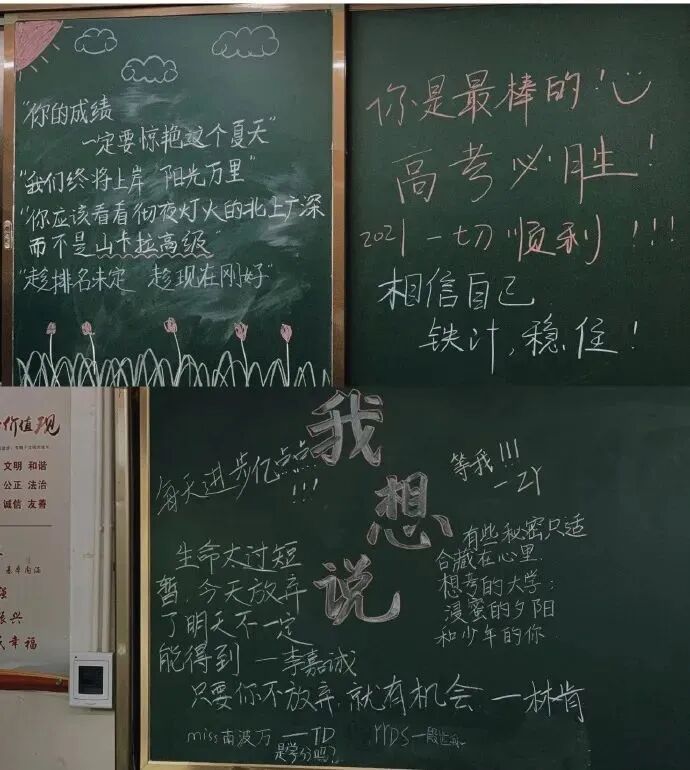 "你的成绩
一定要惊艳这个夏天"
"我们终将上岸 阳光万里"
"你应该看看彻夜灯火的北上广深
而不是山卡拉高级"
"趁排名未定 趁现在刚好"
你是最棒的!
高考必胜!
2021一切顺利!!!
相信自己
铁汁,稳住!
价值观
文明 和谐
公正 法治
诚信 友善
基本内涵
强
振兴
幸福
我想说
每天进步亿点点
!!!
等我!!!
—ZY
生命太过短
暂,今天放弃
了明天不一定
能得到 —李嘉诚
有些秘密只适
合藏在心里
想考的大学:
浸蜜的夕阳
和少年的你
只要你不放弃,就有机会 —林肯
miss南波万 —TD
是学分吗?
YYDS—